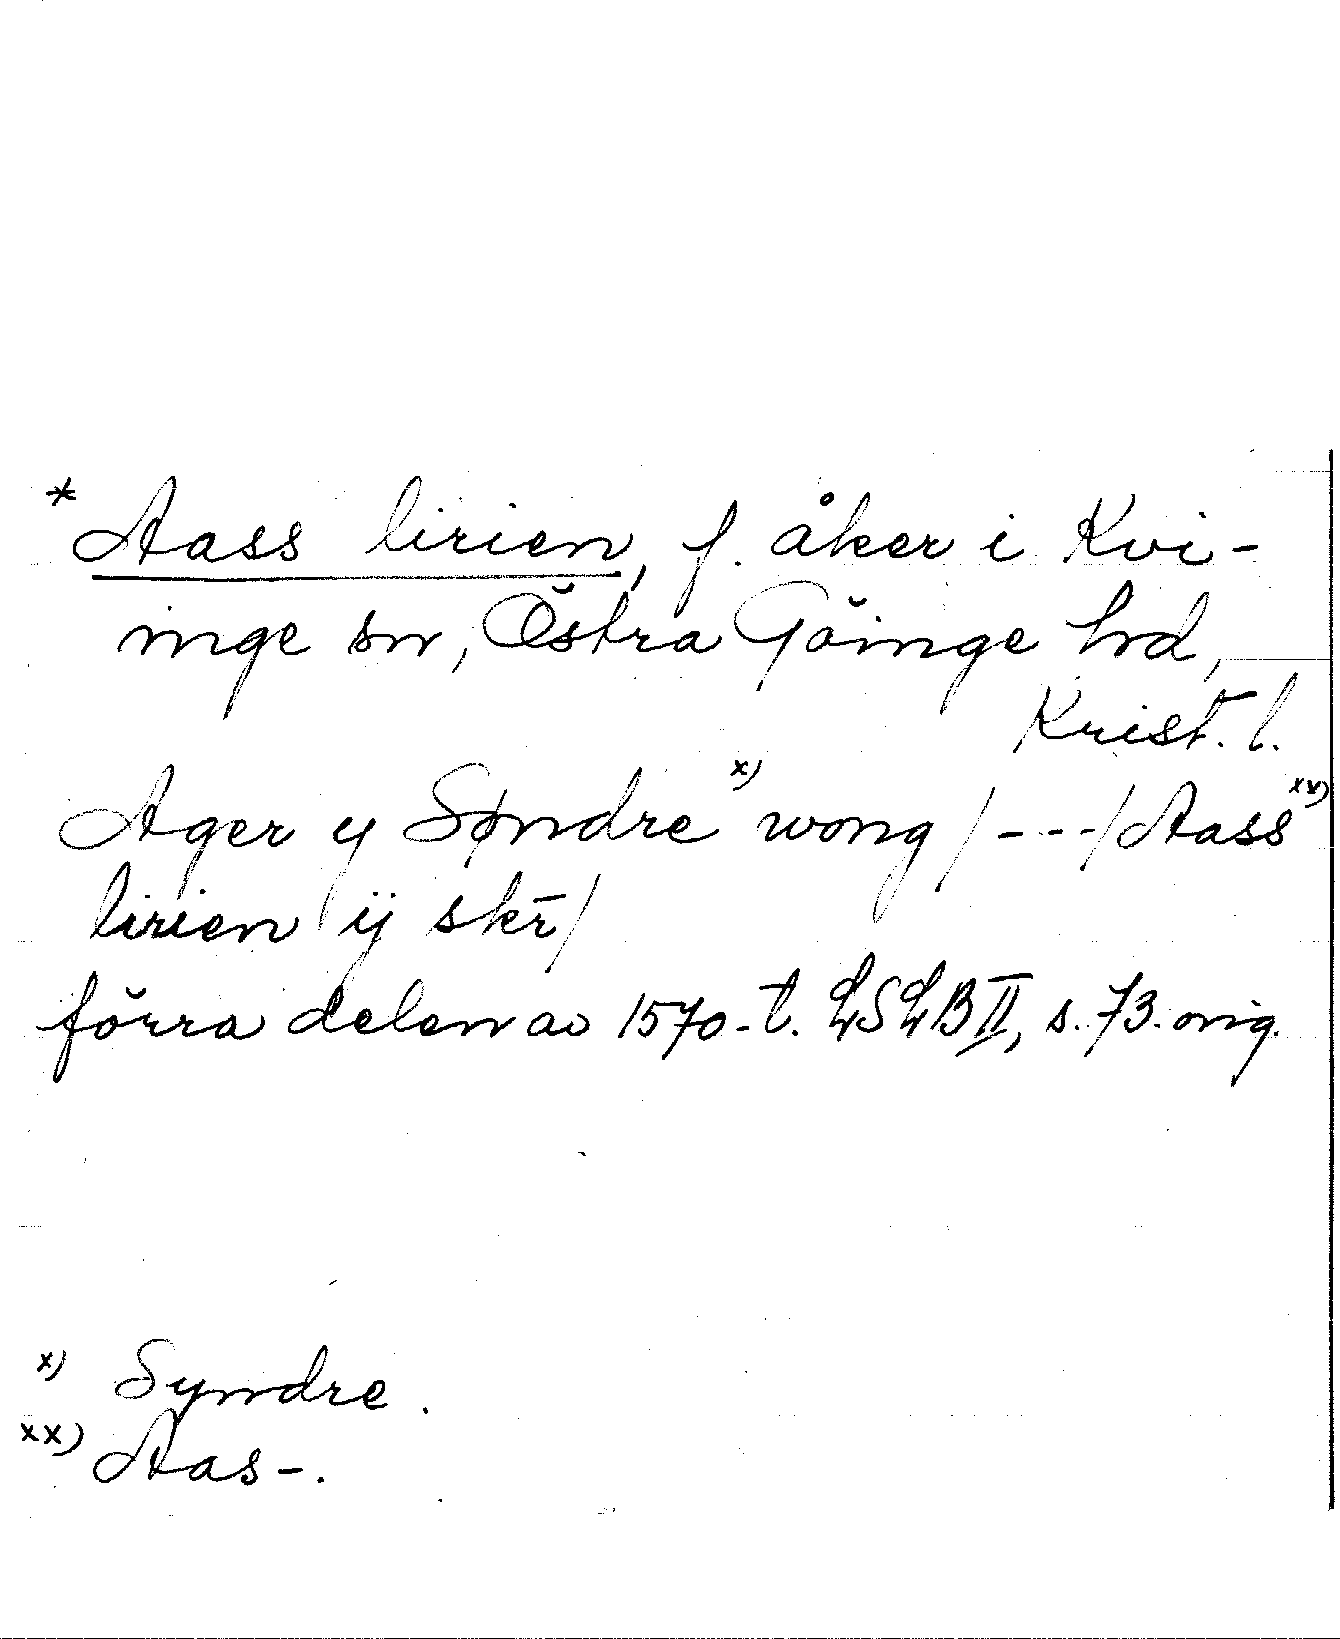 * Aass lirien, f. åker i Kvi-
inge sn, Östra Göinge hd,
Krist. l.
Ager y Søndre x) wong /---/ Aass xx)
lirien ij skr̄/
förra delen av 1570-t. LSLB II, s. 73. orig.
x) Syndre.
xx) Aas-.